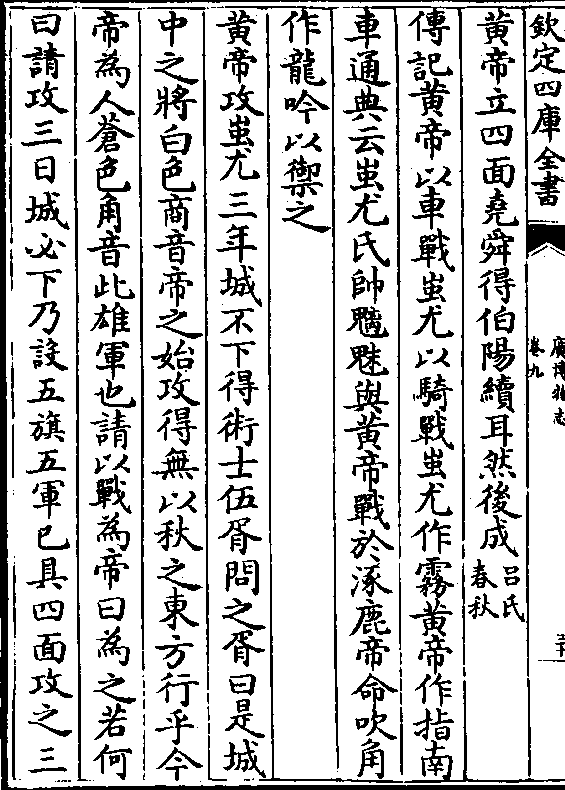 欽定四庫全書
廣博物志
卷九
黄帝立四面堯舜得伯陽續耳然後成
吕氏
春秋
傳記黄帝以車戰蚩尤以騎戰蚩尤作霧黄帝作指南
車通典云蚩尤氏帥魑魅與黄帝戰於涿鹿帝命吹角
作龍吟以禦之
黄帝攻蚩尤三年城不下得術士伍胥問之胥曰是城
中之將白色商音帝之始攻得無以秋之東方行乎今
帝為人蒼色角音此雄軍也請以戰為帝曰為之若何
曰請攻三日城必下乃設五旗五軍已具四面攻之三